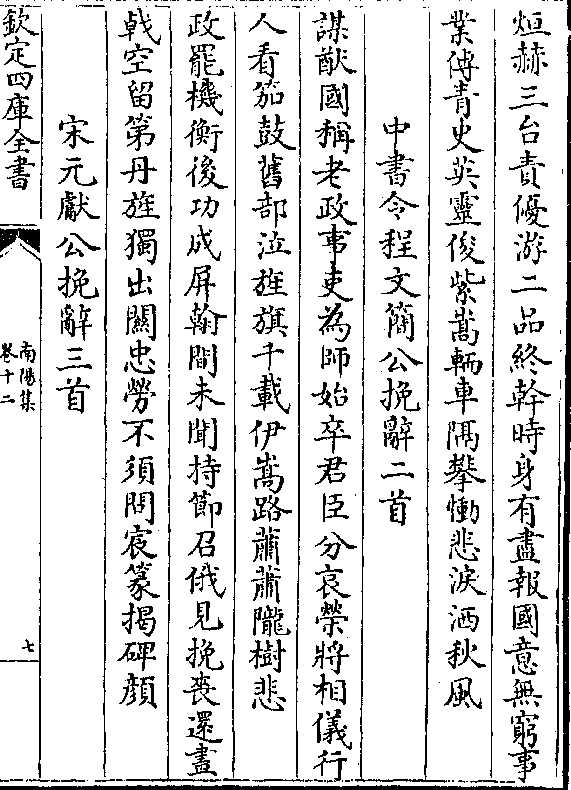 烜赫三台責優游二品終幹時身有盡報國意無窮事
業傳青史英靈俟紫嵩輀車隅攀慟悲淚洒秋風
中書令程文簡公挽辭二首
謀猷國稱老政事吏為師始卒君臣分哀榮將相儀行
人看笳鼓舊部泣旌旗千載伊嵩路蕭蕭隴樹悲
政罷機衡後功成屏翰間未聞持節召俄見挽喪還畫
戟空留第丹旌獨出關忠勞不須問宸篆揭碑顔
宋元獻公挽辭三首
欽定四庫全書
南陽集
卷十二
七